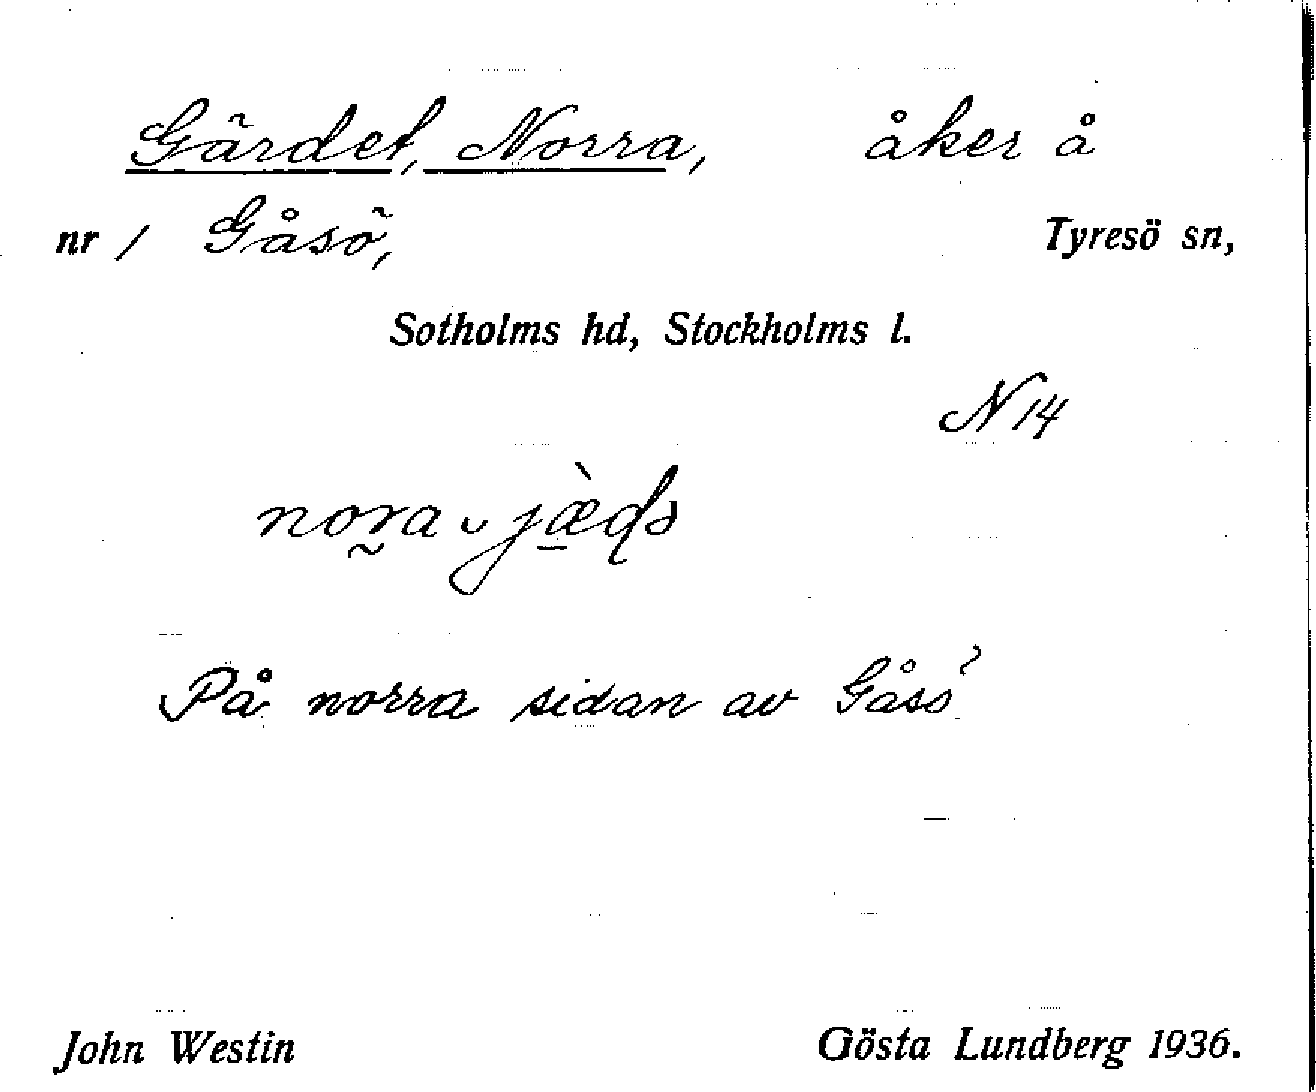 Gärdet, Norra, åker å
nr 1 Gåsö, Tyresö sn,
Sotholms hd, Stockholms l.
N 14
På norra sidan av Gåsö
John Westin Gösta Lundberg 1936.